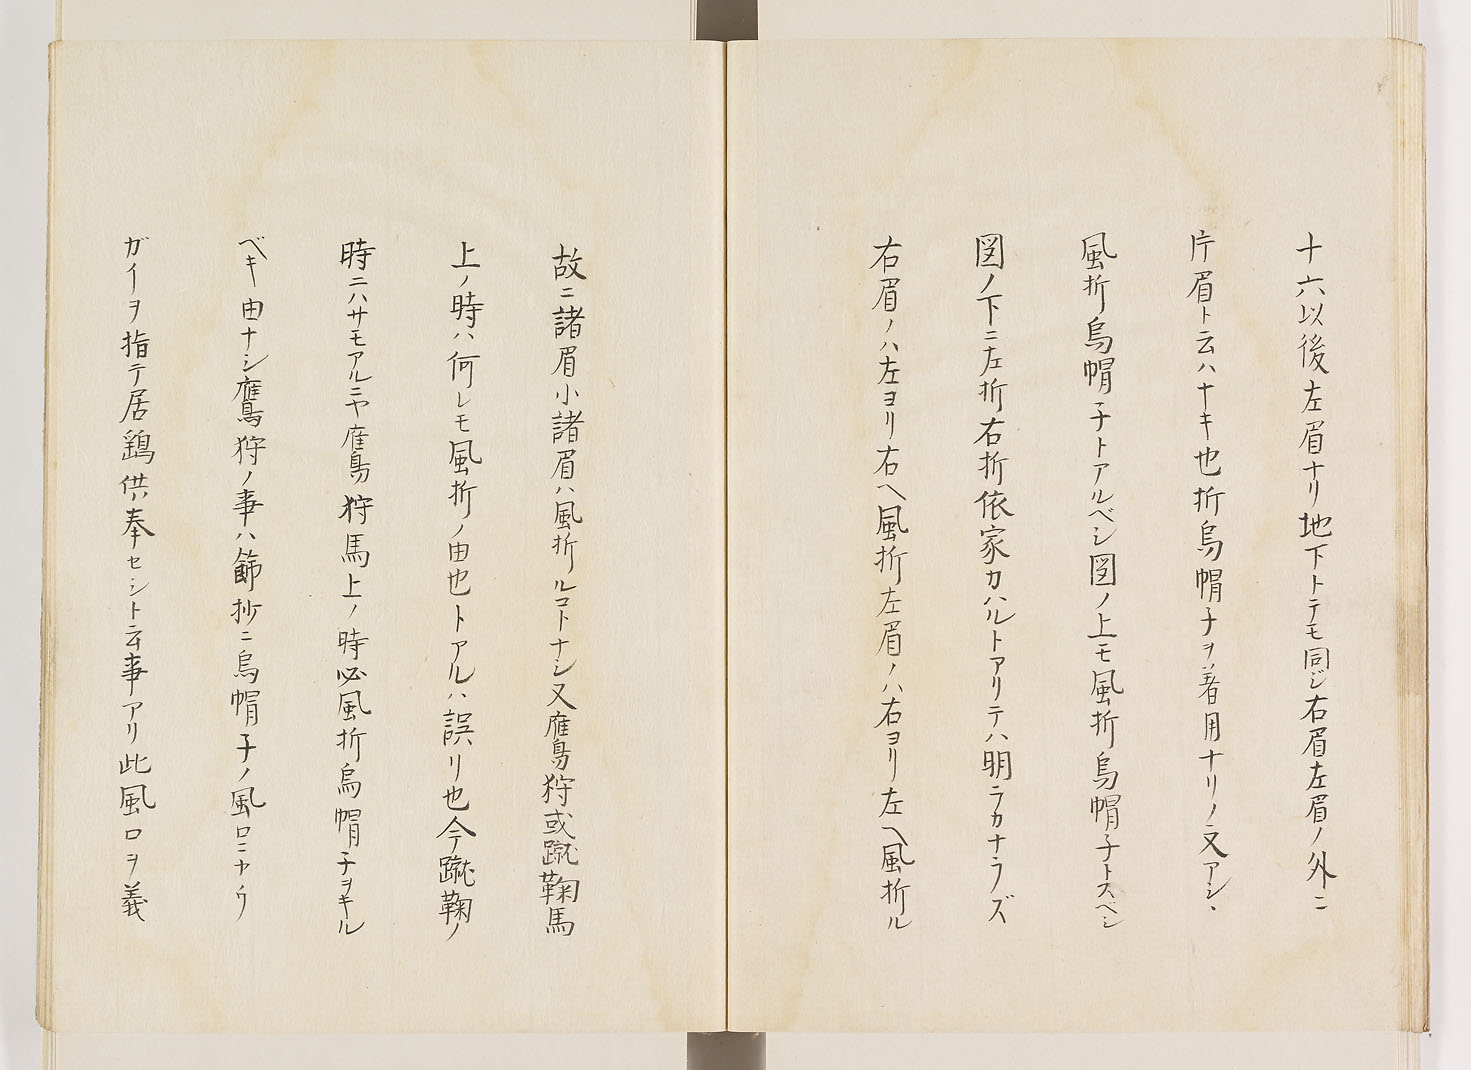 十六以後左眉ナリ地下トテモ同ジ右眉左眉ノ外ニ
片眉ト云ハナキ也折烏帽子ヲ著用ナリノ又アシヽ
風折烏帽子トアルベシ図ノ上モ風折烏帽子トスベシ
図ノ下ニ左折右折依家カハルトアリテハ明ラカナラズ
右眉ノハ左ヨリ右ヘ風折左眉ノハ右ヨリ左ヘ風折ル
故ニ諸眉小諸眉ハ風折ルコトナシ又鷹狩或蹴鞠馬
上ノ時ハ何レモ風折ノ由也トアルハ誤リ也今蹴鞠ノ
時ニハサモアルニヤ鷹狩馬上ノ時必風折烏帽子ヲキル
ベキ由ナシ鷹狩ノ事ハ餝抄ニ烏帽子ノ風口ニヤウ
ガイヲ指テ居鷂供奉セシト云事アリ此風口ヲ義